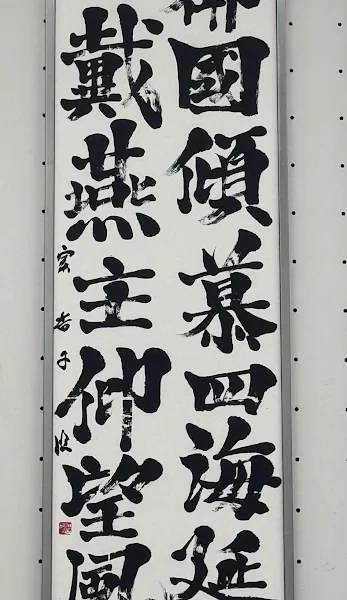 國傾慕四海延
戴燕主仰望風